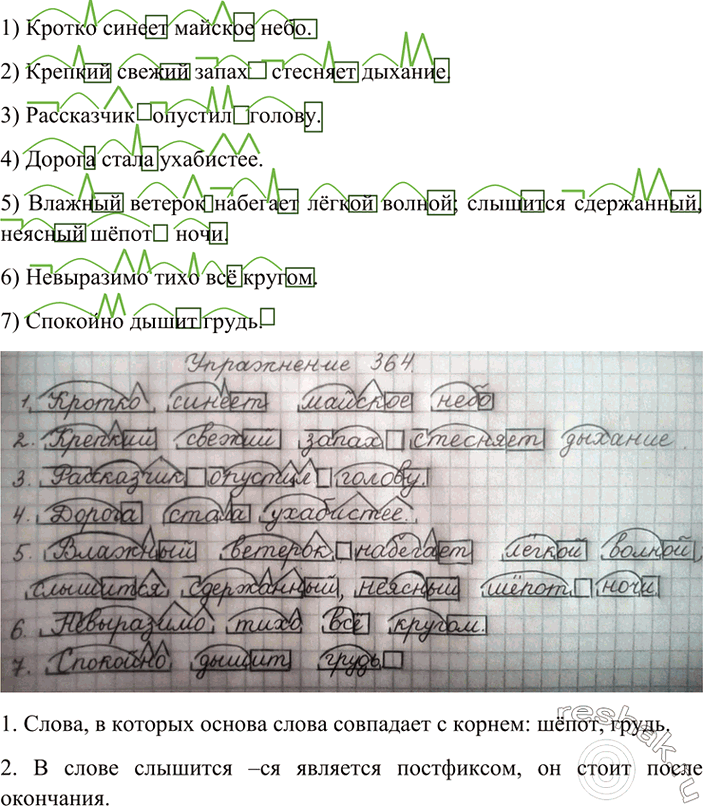 1) Кротко синеет майское небо.
2) Крепкий свежий запах стесняет дыхание.
3) Рассказчик опустил голову.
4) Дорога стала ухабистее.
5) Влажный ветерок набегает лёгкой волной; слышится сдержанный,
неясный шёпот ночи.
6) Невыразимо тихо всё кругом.
7) Спокойно дышит грудь.
Упражнение 364.
1. Кротко синеет майское небо
2. Крепкий свежий запах стесняет дыхание.
3. Рассказчик опустил голову.
4. Дорога стала ухабистее.
5. Влажный ветерок набегает лёгкой волной,
слышится сдержанный, неясный шёпот ночи
6. Невыразимо тихо всё кругом.
7. Спокойно дышит грудь
1. Слова, в которых основа слова совпадает с корнем: шёпот, грудь.
2. В слове слышится –ся является постфиксом, он стоит после
окончания.
reshak.ru